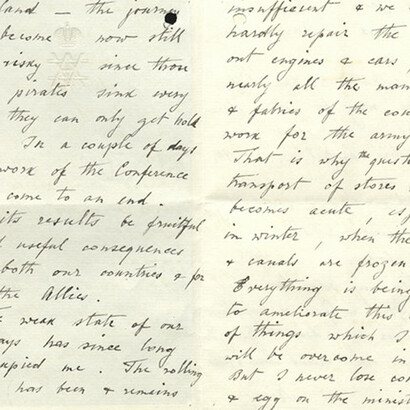 land — the journey
become now still
risky since those
pirates sink every
they can only get hold
In a couple of days
work of the Conference
come to an end.
its results be fruitful
useful consequences
both our countries & for
the Allies.
weak state of our
has since long
me. The rolling
has been & remains
insufficient & we
hardly repair the
out engines & cars
nearly all the
& fabrics of the
work for the army
That is why the
transport of stores
becomes acute,
in winter, when the
& canals are frozen
Everything is being
to ameliorate this
of things which I
will be overcome in
But I never lose
& egg on the